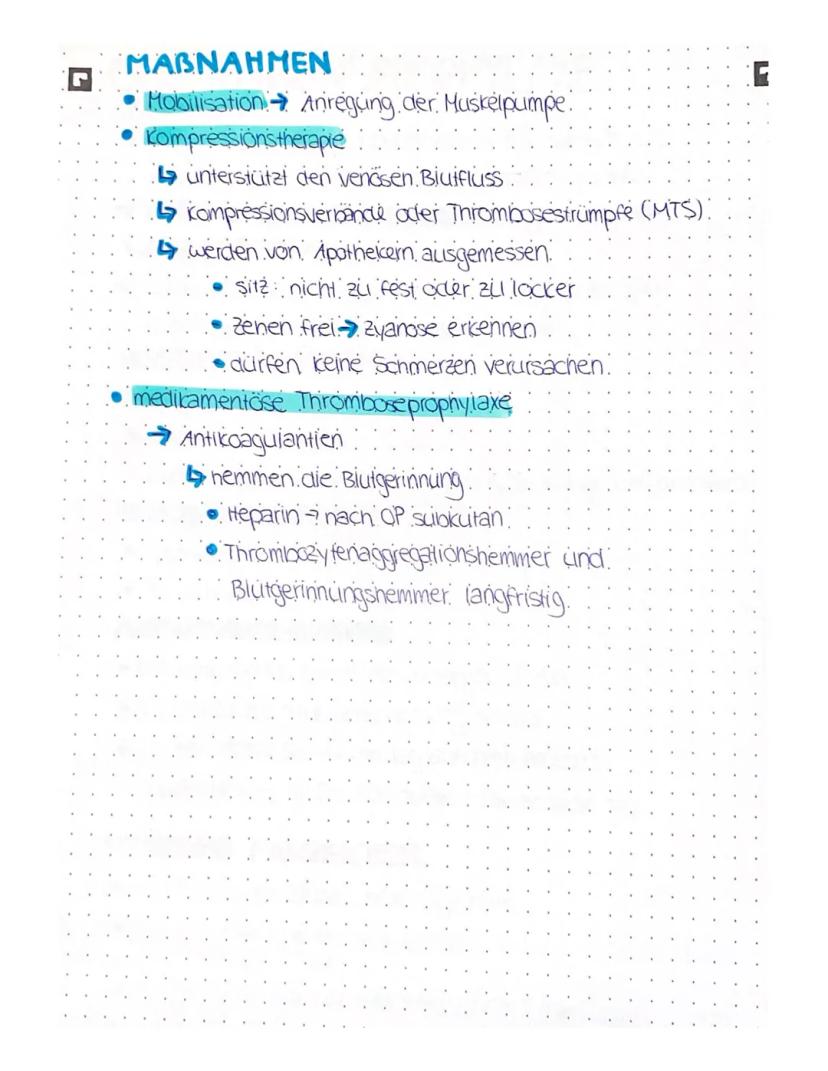 MAßNAHMEN
• Mobilisation → Anregung der Muskelpumpe
• Kompressionstherapie
↳ unterstützt den venösen Blutfluss
↳ Kompressionsverbände oder Thrombosestrümpfe (MTS)
↳ werden von Apothekern ausgemessen
• Sitz: nicht zu fest oder zu locker
• Zehen frei → Zyanose erkennen
• dürfen keine Schmerzen verursachen
• medikamentöse Thromboseprophylaxe
→ Antikoagulantien
↳ hemmen die Blutgerinnung
• Heparin → nach OP subkutan
• Thrombozytenaggregationshemmer und
Blutgerinnungshemmer langfristig